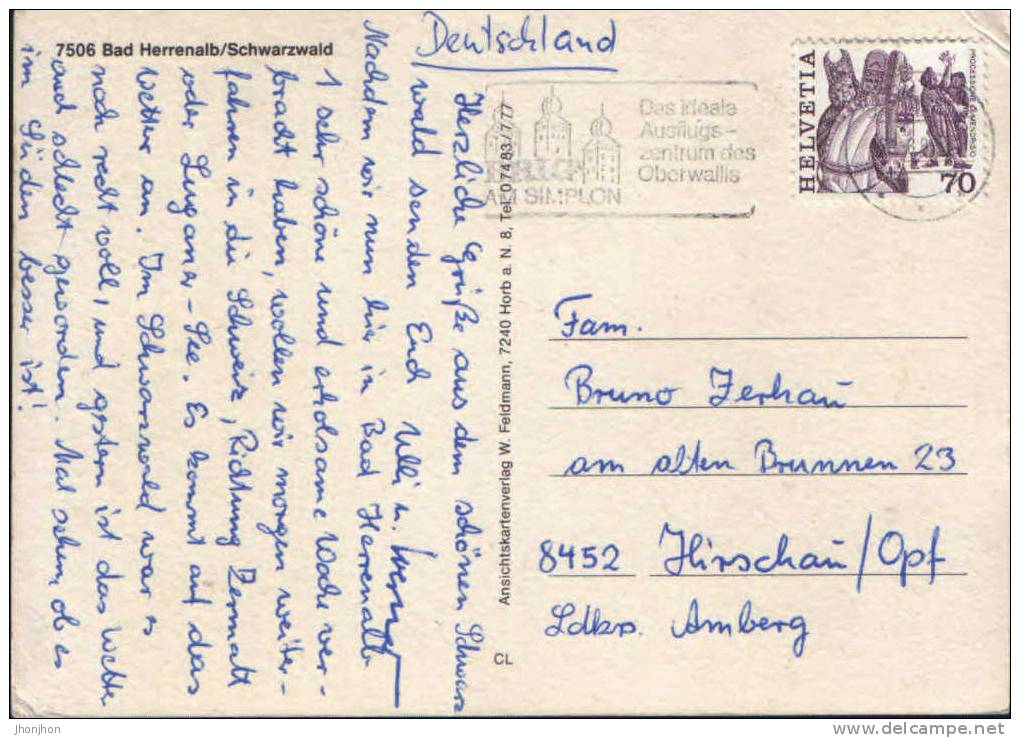 7506 Bad Herrenalb/Schwarzwald
Deutschland
Herzliche Grüße aus dem schönen Schwarz
wald senden Euch Ulli u. Werner
Nachdem wir nun hier in Bad Herrenalb
1 sehr schöne und erholsame Woche ver-
bracht haben, wollen wir morgen weiter-
fahren in die Schweiz, Richtung Zermatt
oder Luganer-See. Es kommt auf das
Wetter an. Im Schwarzwald war es
noch recht voll, und gestern ist das Wetter
auch schlecht geworden. Mal sehen, ob es
im Süden besser ist!
Ansichtskartenverlag W. Feldmann, 7240 Horb a. N. 8, Tel. 0 74 83 / 7 77
CL
BRIG
AM SIMPLON
Das ideale
Ausflugs-
zentrum des
Oberwallis
HELVETIA
PROCESSIONE MENDRISIO
70
Fam.
Bruno Zerhau
am alten Brunnen 23
8452 Hirschau/Opf
Ldkrs. Amberg
jhonjhon
www.delcampe.net